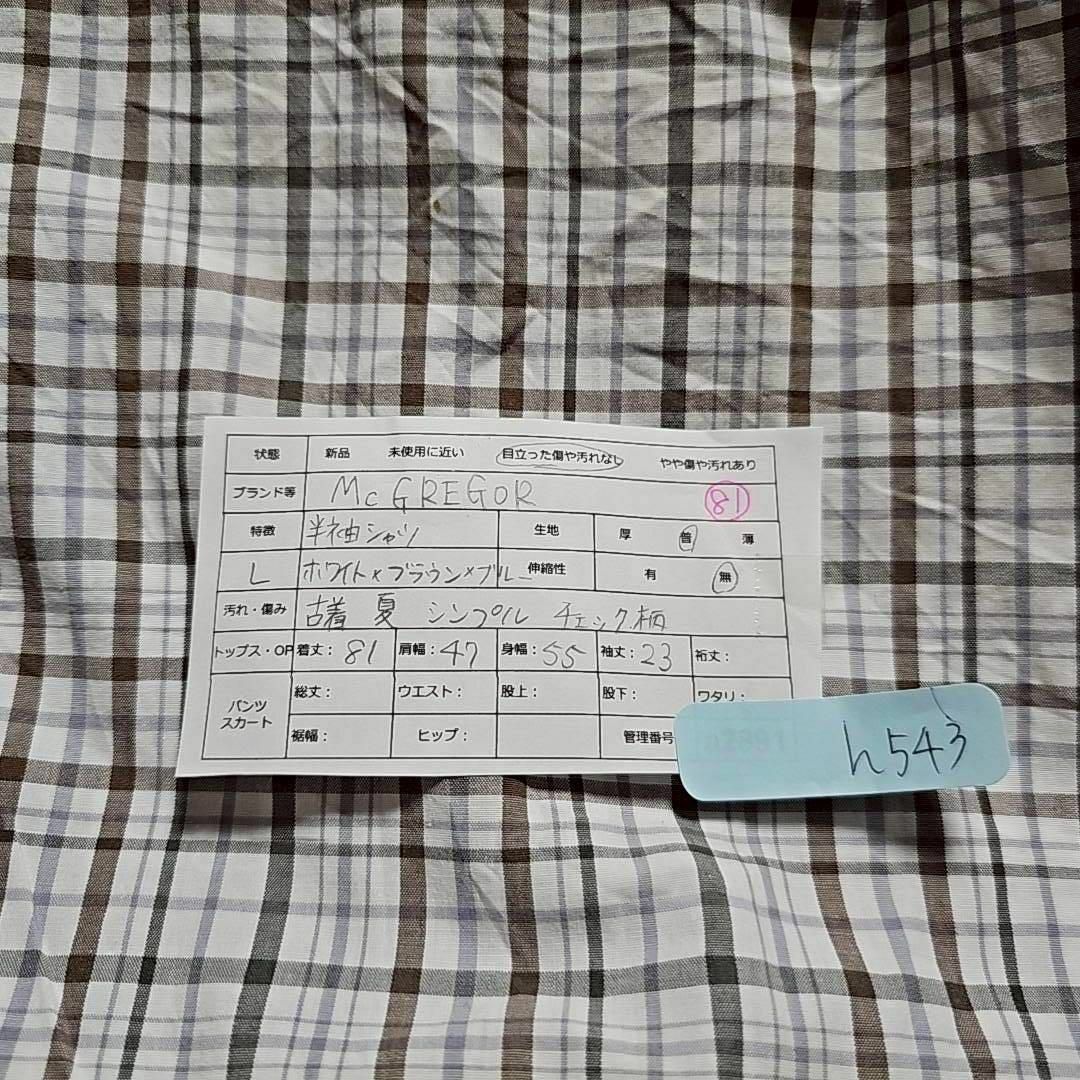 状態 新品 未使用に近い 目立った傷や汚れなし やや傷や汚れあり
ブランド等 McGREGOR 81
特徴 半袖シャツ 生地 厚 普 薄
L ホワイト×ブラウン×ブルー 伸縮性 有 無
汚れ・傷み 古着 夏 シンプル チェック柄
トップス・OP 着丈：81 肩幅：47 身幅：55 袖丈：23 裄丈：
パンツ スカート 総丈： ウエスト： 股上： 股下： ワタリ：
裾幅： ヒップ： 管理番号
h543